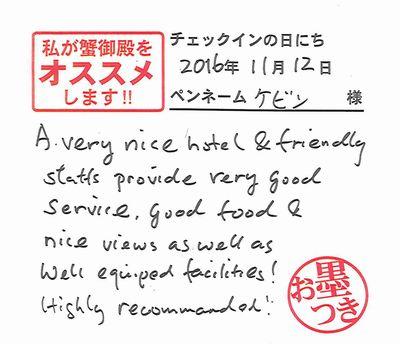 私が蟹御殿を
オススメ
します!!
チェックインの日にち
2016年 11月 12日
ペンネーム ケビン 様
A very nice hotel & friendly
staffs provide very good
service, good food &
nice views as well as
well equiped facilities!
Highly recommanded!
お墨つき